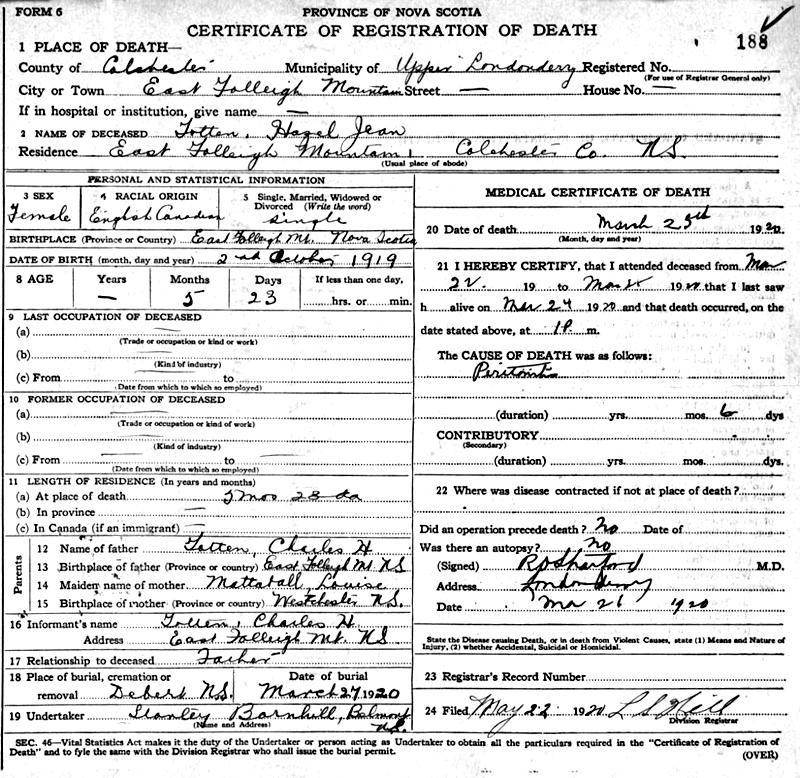 FORM 6
PROVINCE OF NOVA SCOTIA
CERTIFICATE OF REGISTRATION OF DEATH
188
1 PLACE OF DEATH—
County of Colchester Municipality of Upper Londondery Registered No.
(For use of Registrar General only)
City or Town East Folleigh Mountain Street — House No. —
If in hospital or institution, give name —
2 NAME OF DECEASED Totten, Hazel Jean
Residence East Folleigh Mountain, Colchester Co. N.S.
(Usual place of abode)
PERSONAL AND STATISTICAL INFORMATION
3 SEX Female
4 RACIAL ORIGIN English Canadian
5 Single, Married, Widowed or Divorced (Write the word) Single
BIRTHPLACE (Province or Country) East Folleigh Mt. Nova Scotia
DATE OF BIRTH (month, day and year) 2nd October 1919
8 AGE Years — Months 5 Days 23 If less than one day, hrs. or min.
9 LAST OCCUPATION OF DECEASED
(a) —
(Trade or occupation or kind or work)
(b) —
(Kind of industry)
(c) From — to —
(Date from which to which so employed)
10 FORMER OCCUPATION OF DECEASED
(a) —
(Trade or occupation or kind of work)
(b) —
(Kind of industry)
(c) From — to —
(Date from which to which so employed)
11 LENGTH OF RESIDENCE (In years and months)
(a) At place of death 5 mos 23 da
(b) In province —
(c) In Canada (if an immigrant) —
Parents
12 Name of father Totten, Charles H
13 Birthplace of father (Province or country) East Folleigh Mt. N.S
14 Maiden name of mother Mattatall, Louise
15 Birthplace of mother (Province or country) Westchester N.S.
16 Informant's name Totten, Charles H
Address East Folleigh Mt. N.S
17 Relationship to deceased Father
18 Place of burial, cremation or removal Debert N.S. Date of burial March 27 1920
19 Undertaker Stanley Barnhill, Belmont N.S.
(Name and Address)
MEDICAL CERTIFICATE OF DEATH
20 Date of death March 25th 1920
(Month, day and year)
21 I HEREBY CERTIFY, that I attended deceased from Mar
22 19 to Mar 25 1920 that I last saw
h alive on Mar 24 1920 and that death occurred, on the
date stated above, at 1 P. m.
The CAUSE OF DEATH was as follows:
Peritonitis
(duration) yrs. mos. 6 dys
CONTRIBUTORY
(Secondary)
(duration) yrs. mos. dys.
22 Where was disease contracted if not at place of death?
Did an operation precede death? no Date of
Was there an autopsy? no
(Signed) M.D.
Address Londonderry
Date Mar 26 1920
State the Disease causing Death, or in death from Violent Causes, state (1) Means and Nature of
Injury, (2) whether Accidental, Suicidal or Homicidal.
23 Registrar's Record Number
24 Filed May 22 1920
Division Registrar
SEC. 46—Vital Statistics Act makes it the duty of the Undertaker or person acting as Undertaker to obtain all the particulars required in the "Certificate of Registration of
Death" and to fyle the same with the Division Registrar who shall issue the burial permit.
(OVER)